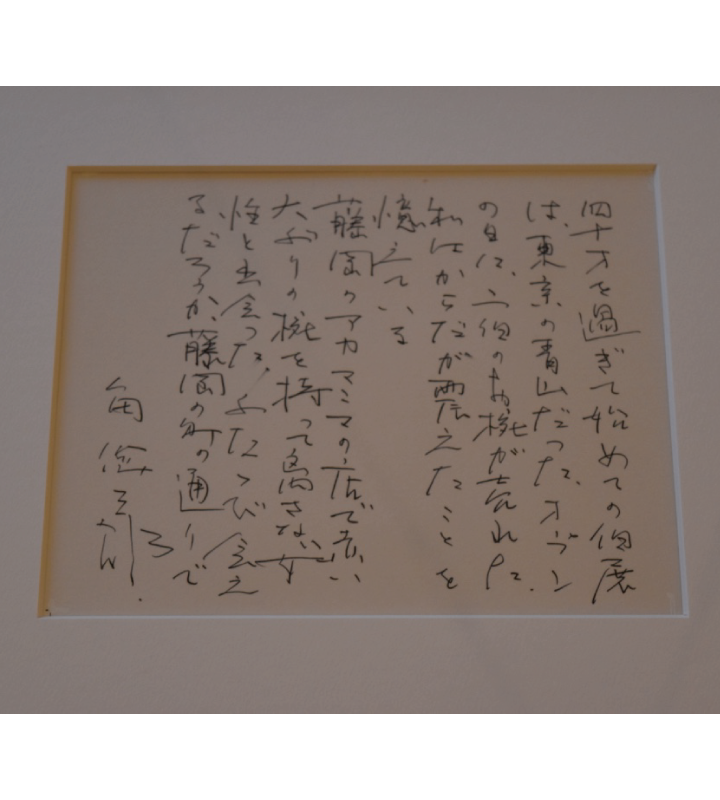 四十才を過ぎて始めての個展
は、東京の青山だった。オープン
の日に、一個のお椀が売れた。
私はからだが震えたことを
憶えている
藤岡のアカマミマの店で赤い
大ぶりの椀を持って離さない女
性と出会った。ふたゝび会え
るだろうか、藤岡の町の通りで
角偉三郎